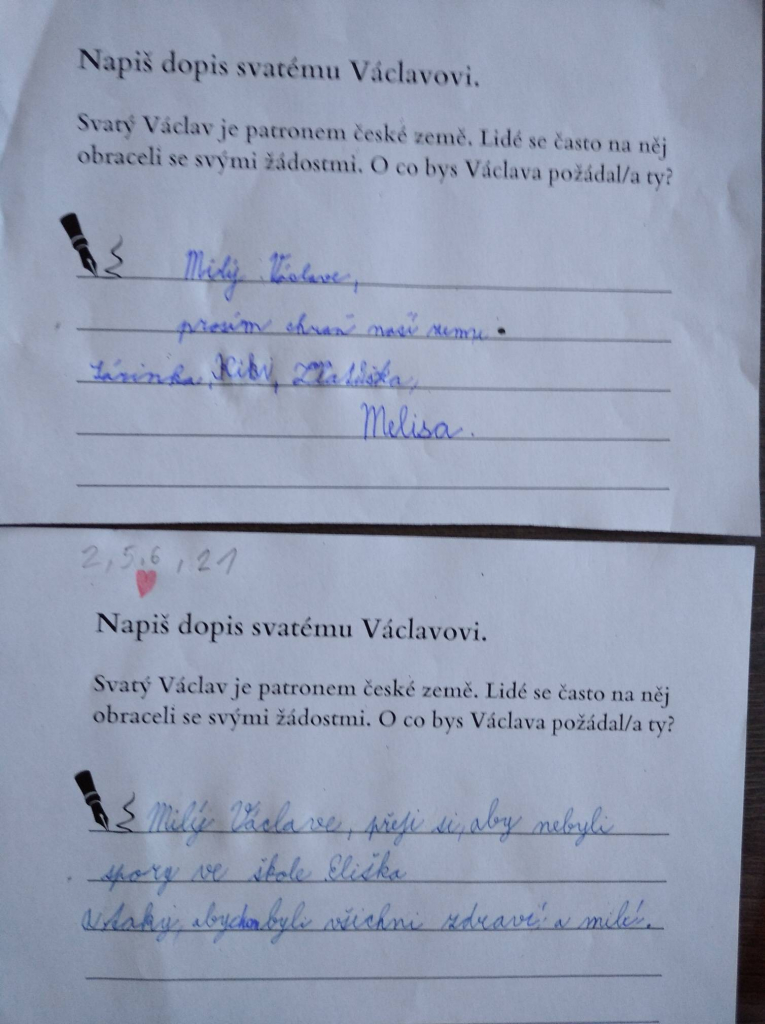 Napiš dopis svatému Václavovi.
Svatý Václav je patronem české země. Lidé se často na něj
obraceli se svými žádostmi. O co bys Václava požádal/a ty?
Milý Václave,
prosím chraň naší zemu.
Lárinka, Kiki, Zlatuška,
Melisa.
2, 5, 6, 21
Napiš dopis svatému Václavovi.
Svatý Václav je patronem české země. Lidé se často na něj
obraceli se svými žádostmi. O co bys Václava požádal/a ty?
Milý Václave, přeji si, aby nebyli
spory ve škole Eliška
a taky, abychom byli všichni zdraví a milé.